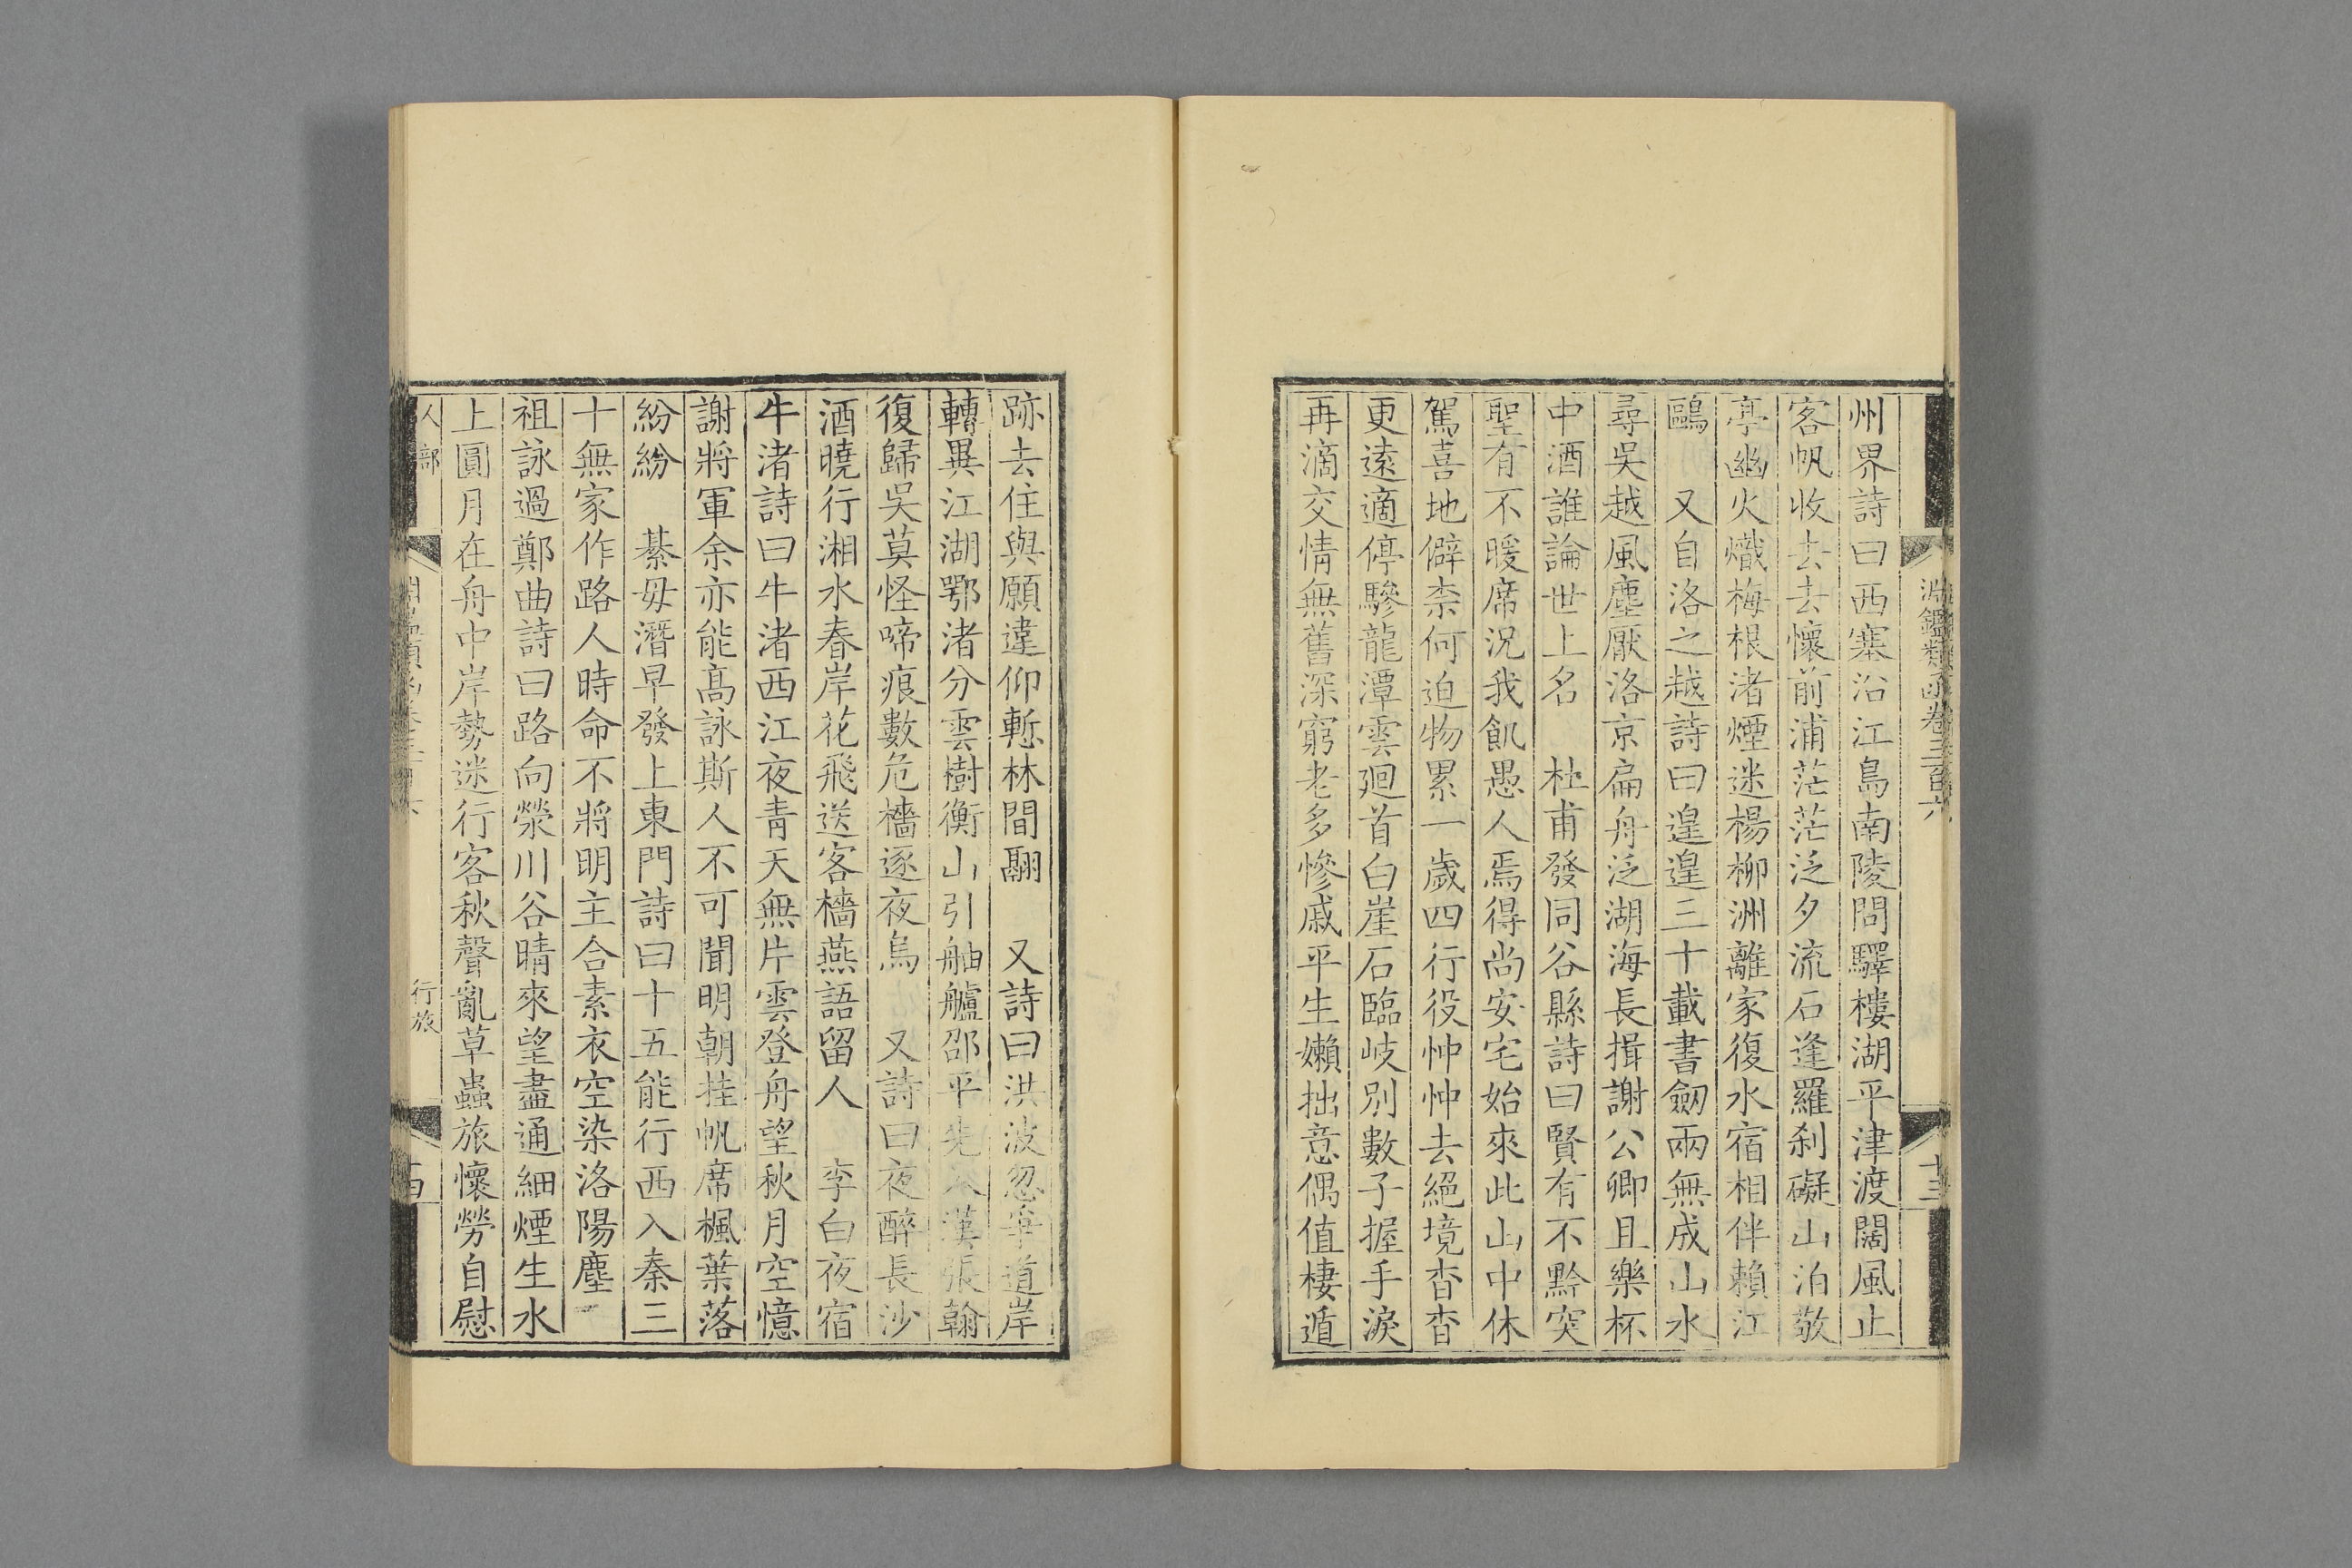 淵鑑類函卷三百六
十三
州界詩曰西塞沿江島南陵問驛樓湖平津渡闊風止
客帆收去去懷前浦茫茫泛夕流石逢羅刹礙山泊敬
亭幽火熾梅根渚煙迷楊柳洲離家復水宿相伴賴江
鷗　又自洛之越詩曰遑遑三十載書劒兩無成山水
尋吳越風塵厭洛京扁舟泛湖海長揖謝公卿且樂杯
中酒誰論世上名　杜甫發同谷縣詩曰賢有不黔突
聖有不暖席況我飢愚人焉得尚安宅始來此山中休
駕喜地僻柰何迫物累一歲四行役忡忡去絕境杳杳
更遠適停驂龍潭雲廻首白崖石臨岐別數子握手淚
再滴交情無舊深窮老多慘戚平生嬾拙意偶值棲遁
跡去住與願違仰慙林間翮　又詩曰洪波忽爭道岸
轉異江湖鄂渚分雲樹衡山引舳艫邵平先入漢張翰
復歸吳莫怪啼痕數危檣逐夜烏　又詩曰夜醉長沙
酒曉行湘水春岸花飛送客檣燕語留人　李白夜宿
牛渚詩曰牛渚西江夜青天無片雲登舟望秋月空憶
謝將軍余亦能高詠斯人不可聞明朝挂帆席楓葉落
紛紛　綦毋潛早發上東門詩曰十五能行西入秦三
十無家作路人時命不將明主合素衣空染洛陽塵
祖詠過鄭曲詩曰路向滎川谷晴來望盡通細煙生水
上圓月在舟中岸勢迷行客秋聲亂草蟲旅懷勞自慰
人部
行旅
十四